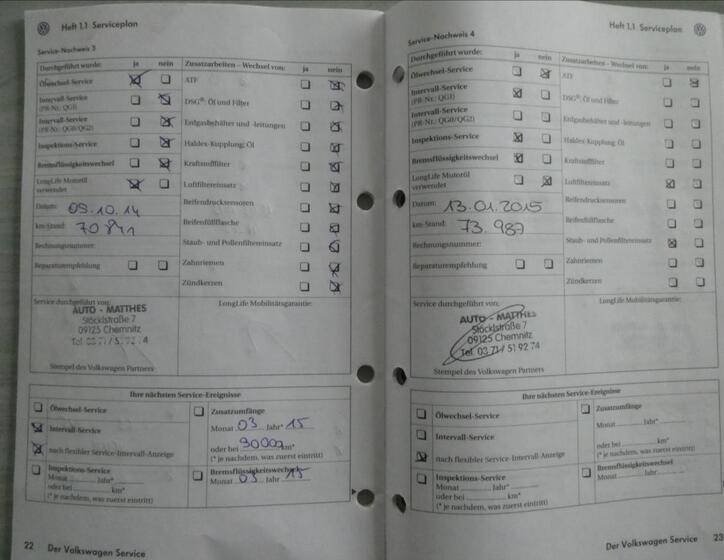 Heft 1.1 Serviceplan
Service-Nachweis 3
Durchgeführt wurde: ja nein
Ölwechsel-Service
Intervall-Service
(PR-Nr.: QG1)
Intervall-Service
(PR-Nr.: QG0/QG2)
Inspektions-Service
Bremsflüssigkeitswechsel
LongLife Motoröl
verwendet
Datum: 09.10.14
km-Stand: 70841
Rechnungsnummer:
Reparaturempfehlung
Zusatzarbeiten – Wechsel von: ja nein
ATF
DSG®: Öl und Filter
Erdgasbehälter und -leitungen
Haldex-Kupplung: Öl
Kraftstofffilter
Luftfiltereinsatz
Reifendrucksensoren
Reifenfüllflasche
Staub- und Pollenfiltereinsatz
Zahnriemen
Zündkerzen
Service durchgeführt von:
AUTO - MATTHES
Stöcklstraße 7
09125 Chemnitz
Tel. 03 71 / 51 92 74
Stempel des Volkswagen Partners
LongLife Mobilitätsgarantie:
Ihre nächsten Service-Ereignisse
Ölwechsel-Service
Intervall-Service
nach flexibler Service-Intervall-Anzeige
Inspektions-Service
Monat Jahr*
oder bei km*
(* je nachdem, was zuerst eintritt)
Zusatzumfänge
Monat 03 Jahr* 15
oder bei 90000 km*
(* je nachdem, was zuerst eintritt)
Bremsflüssigkeitswechsel
Monat 03 Jahr 15
22 Der Volkswagen Service
Heft 1.1 Serviceplan
Service-Nachweis 4
Durchgeführt wurde: ja nein
Ölwechsel-Service
Intervall-Service
(PR-Nr.: QG1)
Intervall-Service
(PR-Nr.: QG0/QG2)
Inspektions-Service
Bremsflüssigkeitswechsel
LongLife Motoröl
verwendet
Datum: 13.01.2015
km-Stand: 73.987
Rechnungsnummer:
Reparaturempfehlung
Zusatzarbeiten – Wechsel von: ja nein
ATF
DSG®: Öl und Filter
Erdgasbehälter und -leitungen
Haldex-Kupplung: Öl
Kraftstofffilter
Luftfiltereinsatz
Reifendrucksensoren
Reifenfüllflasche
Staub- und Pollenfiltereinsatz
Zahnriemen
Zündkerzen
Service durchgeführt von:
AUTO - MATTHES
Stöcklstraße 7
09125 Chemnitz
Tel. 03 71 / 51 92 74
Stempel des Volkswagen Partners
LongLife Mobilitätsgarantie:
Ihre nächsten Service-Ereignisse
Ölwechsel-Service
Intervall-Service
nach flexibler Service-Intervall-Anzeige
Inspektions-Service
Monat Jahr*
oder bei km*
(* je nachdem, was zuerst eintritt)
Zusatzumfänge
Monat Jahr*
oder bei km*
(* je nachdem, was zuerst eintritt)
Bremsflüssigkeitswechsel
Monat Jahr
Der Volkswagen Service 23